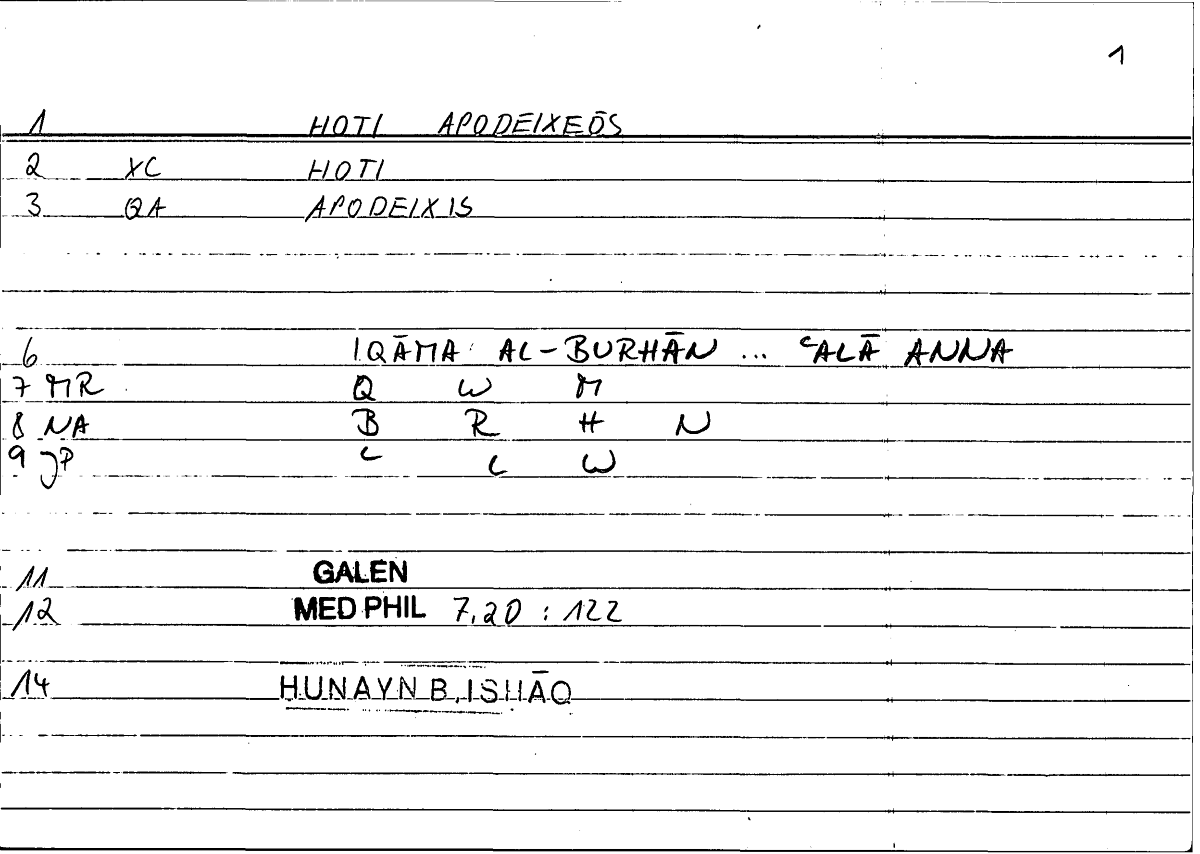 1
1 HOTI APODEIXEŌS
2 XC HOTI
3 QA APODEIXIS
6 IQĀMA AL-BURHĀN ... ʿALĀ ANNA
7 MR Q W M
8 NA B R H N
9 JP ʿ L W
11 GALEN
12 MED PHIL 7,20 : 122
14 HUNAYN B. ISHĀQ